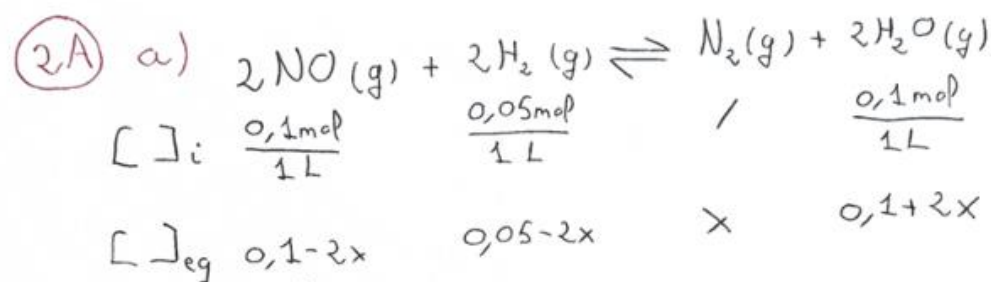 2A a) 2NO (g) + 2H₂ (g) ⇌ N₂(g) + 2H₂O (g)
[ ]i 0,1mol/1 L 0,05mol/1 L / 0,1mol/1 L
[ ]eq 0,1-2x 0,05-2x x 0,1+2x